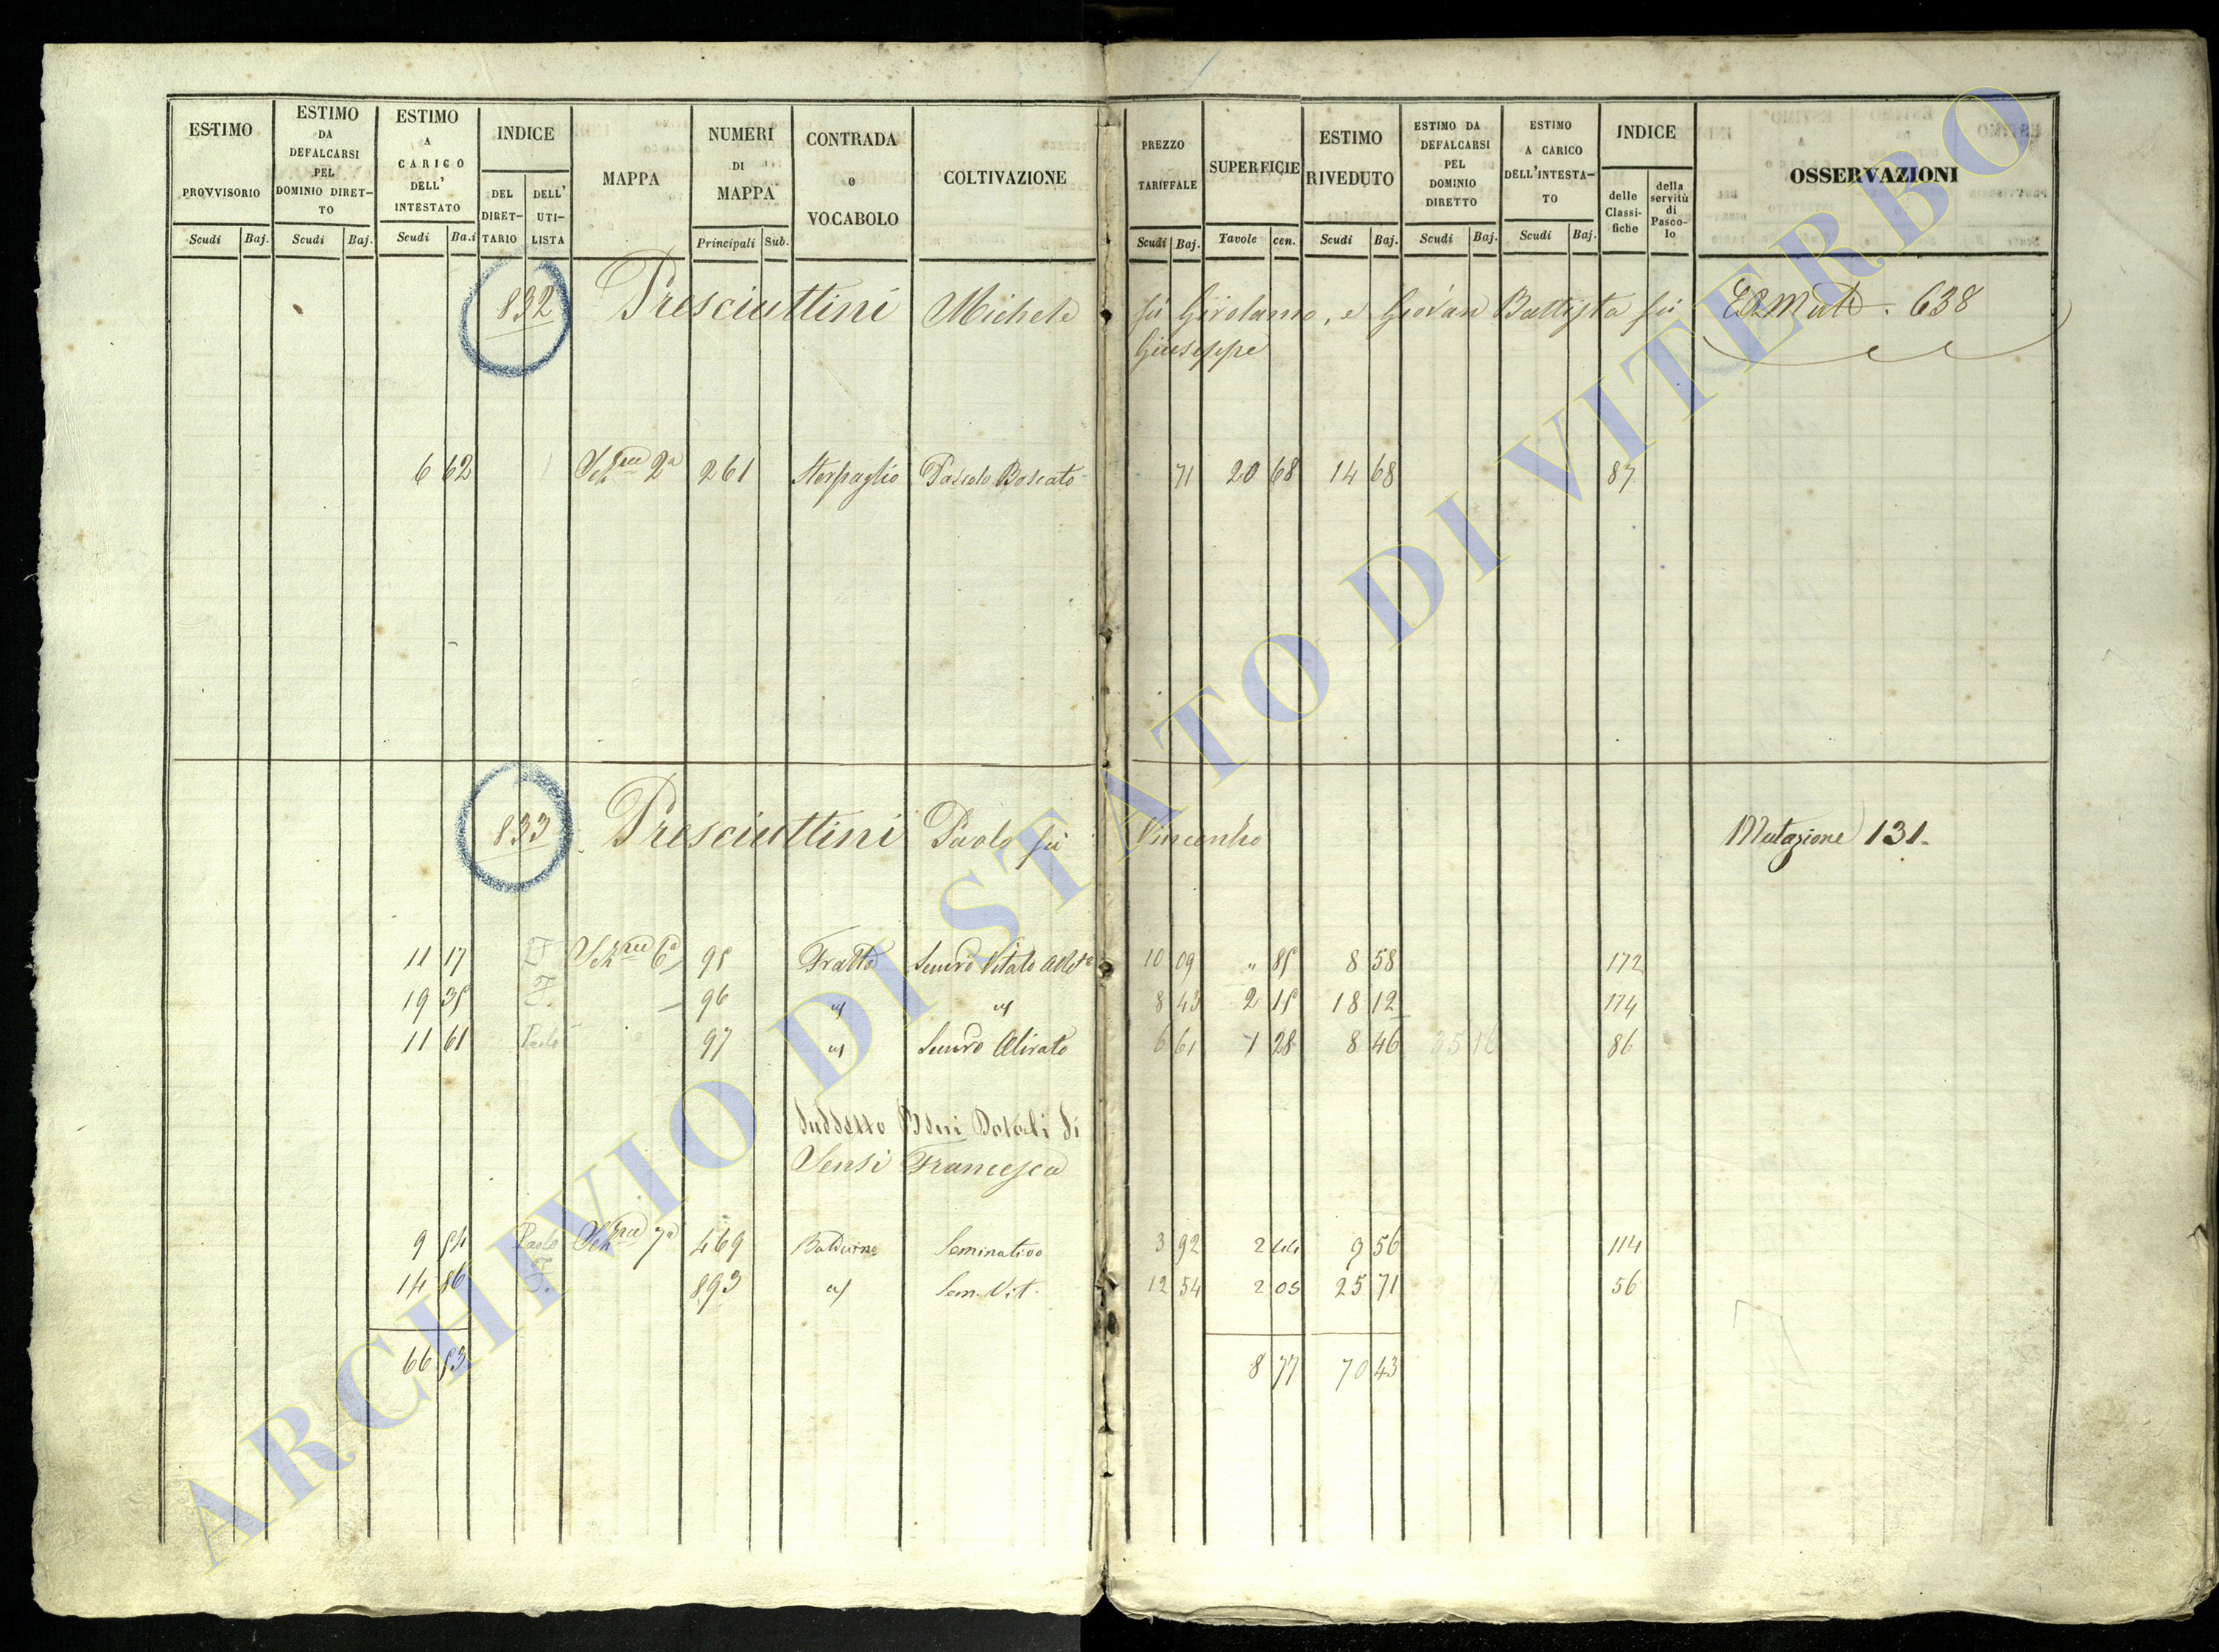 ESTIMO PROVVISORIO Scudi Baj.
ESTIMO DA DEFALCARSI PEL DOMINIO DIRET-TO Scudi Baj.
ESTIMO A CARICO DELL' INTESTATO Scudi Ba.i
INDICE DEL DIRET-TARIO DELL' UTI-LISTA
MAPPA
NUMERI DI MAPPA Principali Sub.
CONTRADA o VOCABOLO
COLTIVAZIONE
PREZZO TARIFFALE Scudi Baj.
SUPERFICIE Tavole cen.
ESTIMO RIVEDUTO Scudi Baj.
ESTIMO DA DEFALCARSI PEL DOMINIO DIRETTO Scudi Baj.
ESTIMO A CARICO DELL'INTESTA-TO Scudi Baj.
INDICE delle Classi-fiche della servitù di Pasco-lo
OSSERVAZIONI
832 Presciuttini Michele fù Girolamo, e Giovan Battista fù 638
Giuseppe
6 62 2a 261 Sterpaglio Pascolo Boscato 71 20 68 14 68 87
833 Presciuttini Paolo fù Vincenzo Mutazione 131.
11 17 6a 95 Fratta Semvo Vitato 10 09 " 85 8 58 172
19 35 96 8 43 2 15 18 12 174
11 61 Paolo 97 Semvo Olivato 6 61 1 28 8 46 35 16 86
Suddetto Beni Dotali di
Sensi Francesca
9 54 Paolo 7a 469 Seminativo 3 92 2 44 9 56 114
14 86 893 Sem. Vit. 12 54 2 05 25 71 56
66 53 8 77 70 43
ARCHIVIO DI STATO DI VITERBO